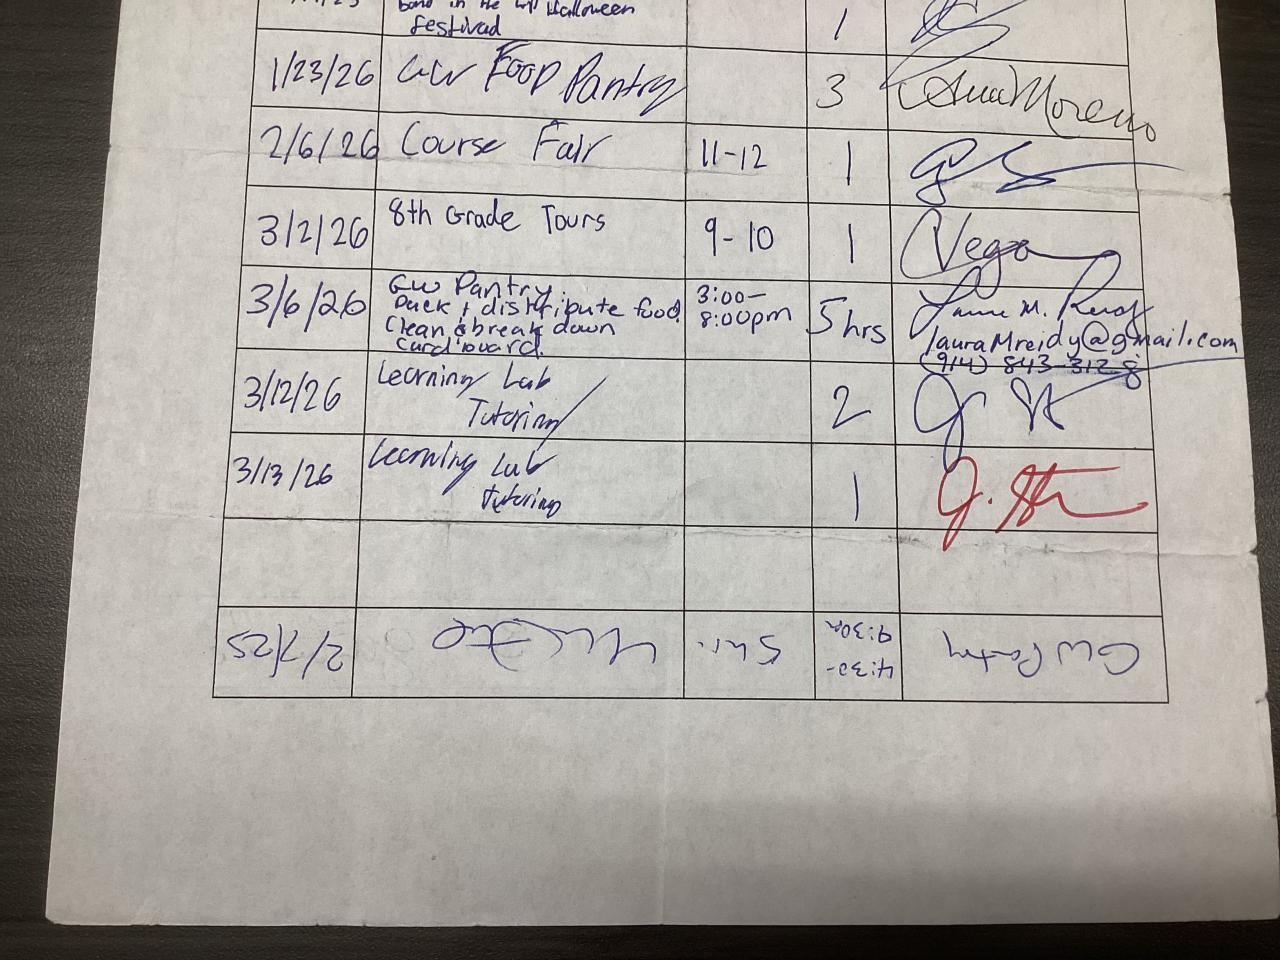 Band in the
Halloween
festival
1
1/23/26 GW Food Pantry 3 Ana Moreno
2/6/26 Course Fair 11-12 1
3/2/26 8th Grade Tours 9-10 1 Vega
3/6/26 GW Pantry 3:00- 5 hrs Laura M. Reidy
Pack + distribute food. 8:00pm lauraMreidy@gmail.com
Clean & break down (914) 843-3128
cardboard.
3/12/26 Learning Lab 2
Tutoring
3/13/26 Learning Lab 1
tutoring
GW Pantry 4:30- 5 hr. 2/7/25
9:30